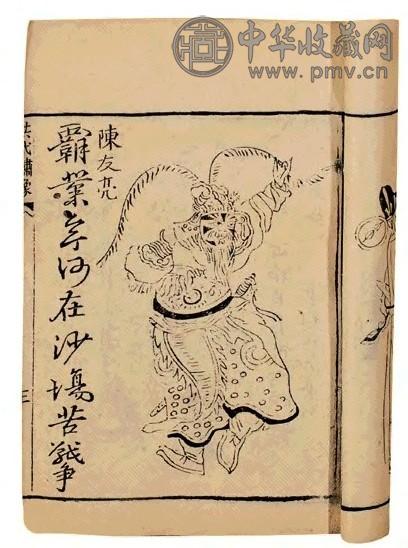 中华收藏网
www.pmv.cn
陳友亮
霸業今何在沙塲苦戰爭
三